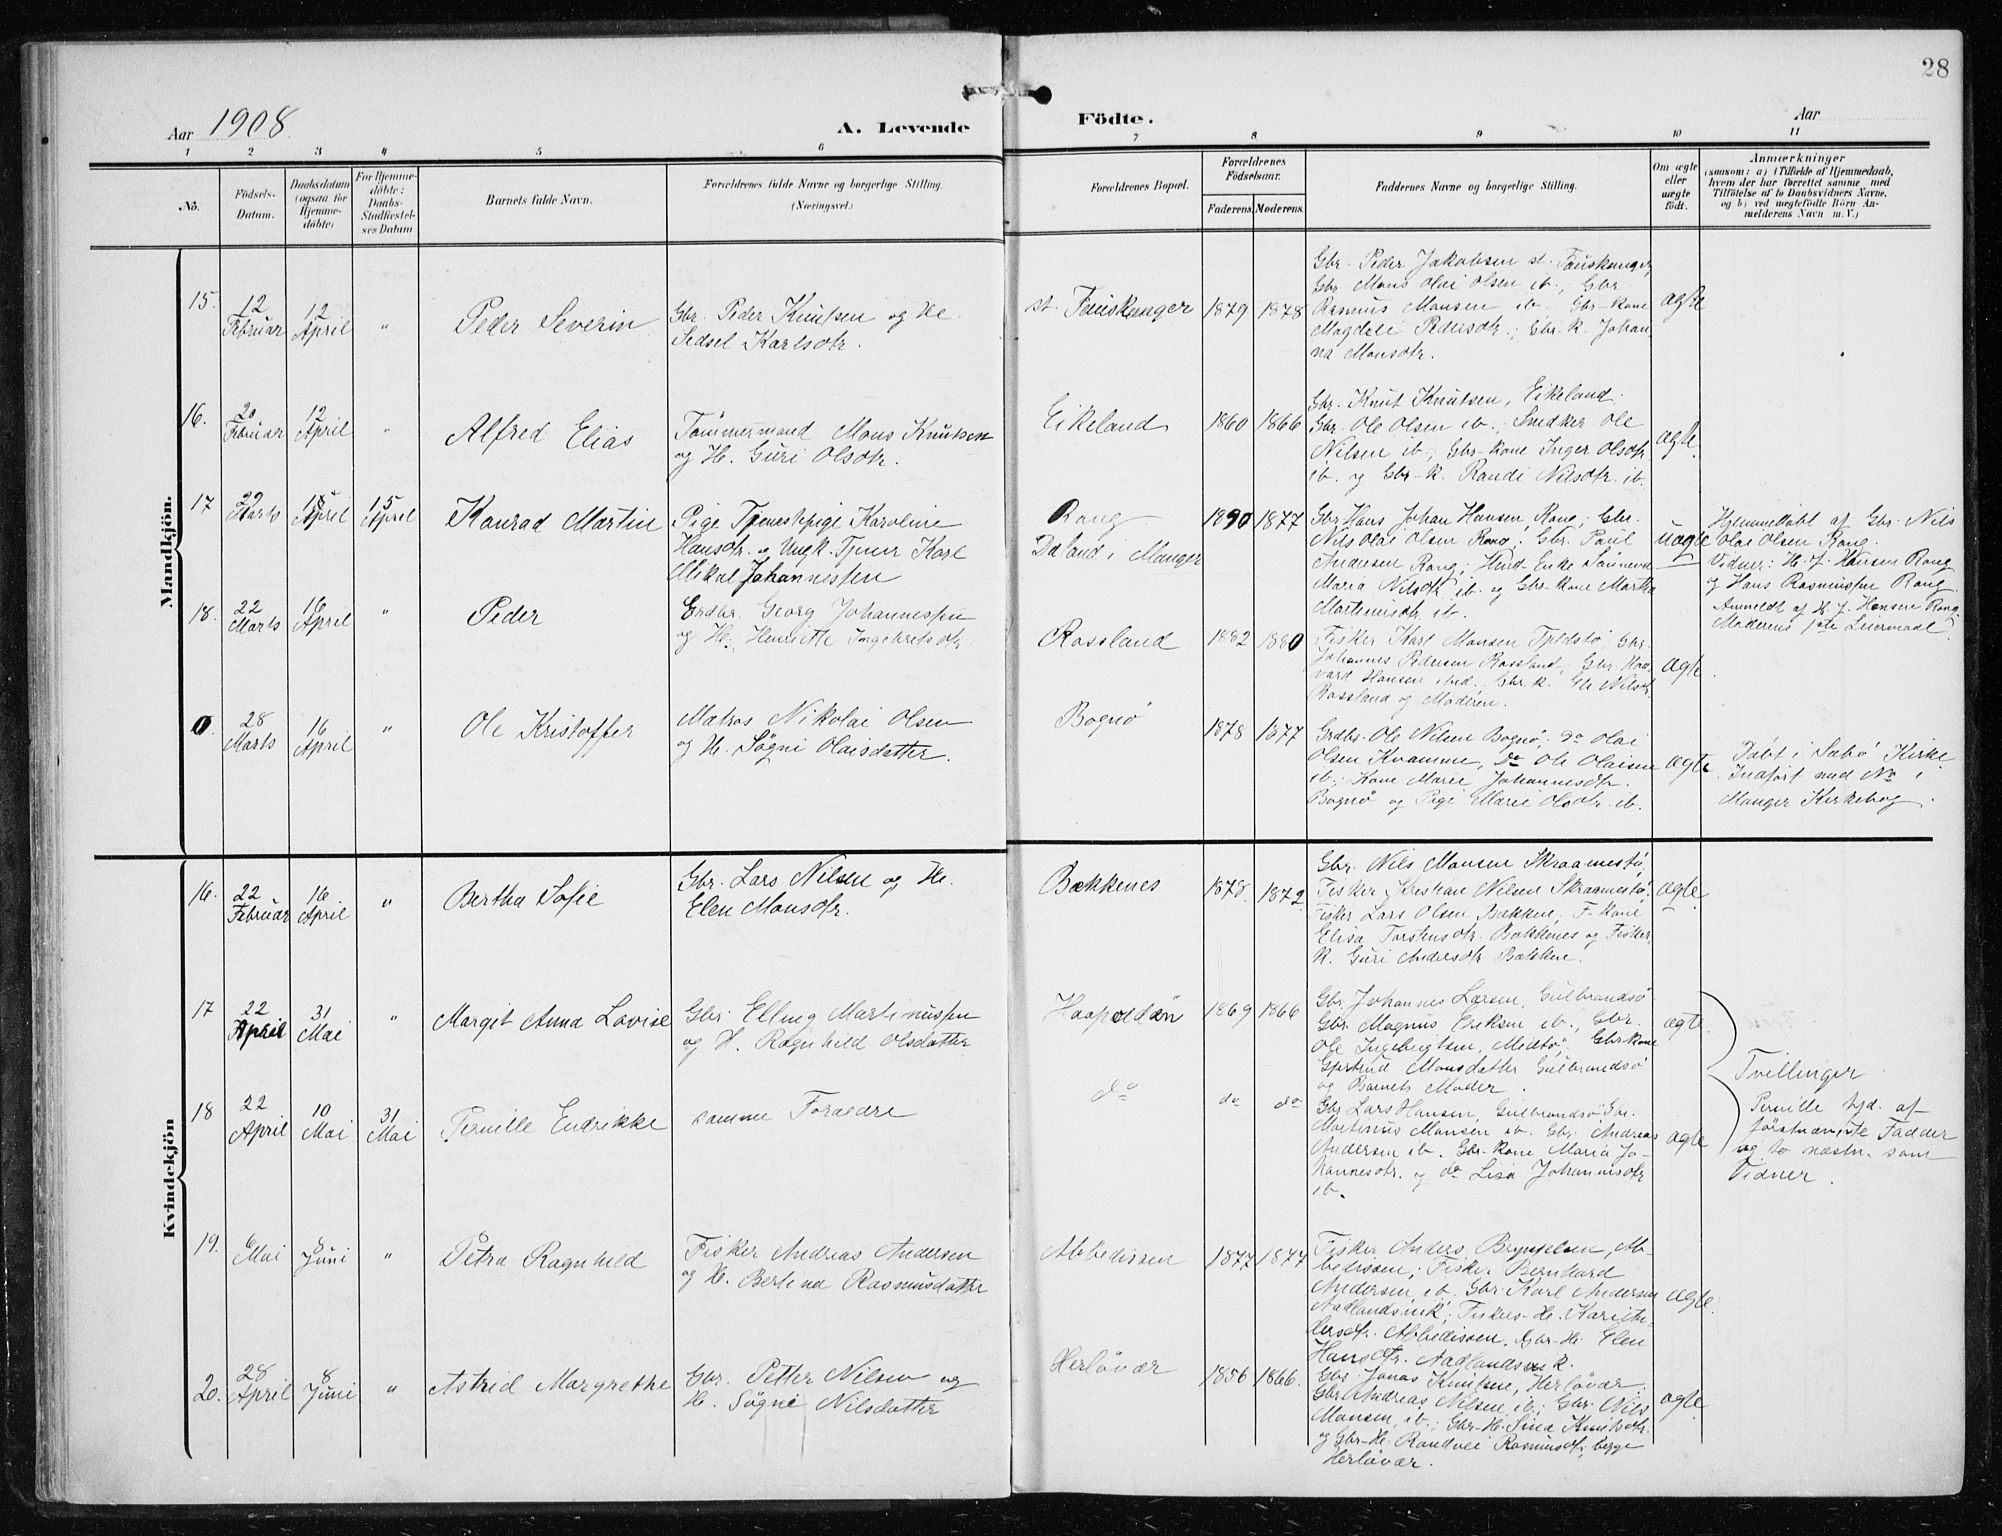 28
Aar 1908.
A. Levende Födte.
Aar
1 2 3 4 5 6 7 8 9 10 11
No.
Födsels-
Datum.
Daabsdatum
(ogsaa for
Hjemme-
döbte)
For Hjemme-
döbte:
Daabs-
Stadfæstel-
ses Datum
Barnets fulde Navn.
Forældrenes fulde Navne og borgerlige Stilling.
(Næringsvei.)
Forældrenes Bopæl.
Forældrenes
Födselsaar.
Faderens. Moderens.
Faddernes Navne og borgerlige Stilling.
Om ægte
eller
uægte
födt.
Anmærkninger
(saasom: a) i Tilfælde af Hjemmedaab,
hvem der har forrettet samme med
Tilföielse af to Daabsvidners Navne.
og b) ved uægtefödte Börn An-
melderens Navn m. V.)
Mandkjön.
15.
12
Februar
12
April
"
Peder Severin
Gbr. Peder Knutsen og He.
Sedsel Karlsdtr.
st. Fauskanger
1879 1878
Gbr. Peder Jakobsen st. Fauskanger,
Gbr Mons Olai Olsen ib., Gbr
Rasmus Monsen ib., Gbr-kone
Magdeli Pedersdtr.; Gbr-k. Johan-
na Monsdtr.
ægte
16.
20
Februar
12
April
"
Alfred Elias
Tømmermand Mons Knutsen
og H. Guri Olsdtr.
Eikeland
1860 1866
Gbr. Knut Knutsen, Eikeland;
Gbr. Ole Olsen ib.; Snedker Ole
Nilsen ib.; Gbr-kone Inger Olsdtr
ib. og Gbr-k. Randi Nilsdtr. ib.
ægte.
17
22
Marts
15
April
15
April
Konrad Martin
Pige Tjenestepige Karoline
Hansdtr. og Ungk. Tjener Karl
Mikal Johannessen
Rong
Daland i Manger
1890 1877
Gbr Hans Johan Hansen, Rong; Gbr.
Nils Olai Olsen Rong; Gbr. Paul
Andersen Rong; Husd Enke Sønneva
Maria Nilsdtr ib. og Gbr-kone Martha
Martemisdtr. ib.
uægte
Hjemmedøbt af Gbr. Nils
Olai Olsen Rong.
Vidner: H. J. Hansen Rong
og Hans Rasmussen Rong.
Anmeldt af H. J. Hansen Rong.
Moderens 1ste Leiermaal.
18.
22
Marts
16
April
"
Peder
Grdbr. Georg Johannessen
og H. Henriette Ingebretsdtr
Rossland
1882 1880
Fisker Karl Monsen Tjeldstø, Gbr.
Johannes Pedersen Rossland; Gbr-Haa-
vard Hansen ibid.; Gbr k. Eli Nilsdtr.
Rossland og Moderen.
ægte.
0.
28
Marts
16
April
"
Ole Kristoffer
Matros Nikolai Olsen
og H. Søgni Olaisdatter.
Bognø
1878 1877
Grdbr. Ole Nilsen Bognø, do Olai
Olsen Kvamme, do Ole Olaisen
ib.; Kone Marie Johannesdtr.
Bognø og Pige Marie Olsdtr. ib.
ægte.
Døbt i Sæbø Kirke.
Indført med No i
Manger Kirkebog.
Kvindekjön
16.
22
Februar
16
April
"
Bertha Sofie
Gbr. Lars Nilsen og He.
Elen Monsdtr.
Bækkenes
1878. 1872.
Gbr. Nils Monsen Skraamestø,
Fisker Kristian Nilsen Skraamestø,
Fisker Lars Olsen Bækken, F-kone
Elisa Torstensdtr. Bækkenes og Fisker-
k. Guri Andersdtr Bækken.
ægte.
17
22
April
31
Mai
"
Margit Anna Lovise
Gbr. Elling Martinussen
og H. Ragnhild Olsdatter
Haapoldøn
1869 1866
Gbr. Johannes Larsen, Gulbrandsø
Gbr. Magnus Eriksen ib., Gbr.
Ole Ingebrigtsen, Midtø, Gbr-kone
Gjertrud Monsdatter Gulbrandsø
og Barnets Moder.
ægte.
Tvillinger
18
22
April
10
Mai
31
Mai
Pernille Endrikke
samme Foraeldre
do
do do
Gbr. Lars Hansen, Gulbrandsø Gbr.
Martinus Monsen ib. Gbr. Andreas
Andersen ib. Gbr-kone Maria Jo-
hannesdtr. og do Lisa Johannesdtr
ib.
ægte
Pernille hjd. af
førstnævnte Fadder
og to næstn. som
Vidner.
19.
6
Mai
8
Juni
"
Petra Ragnhild
Fisker Andreas Andersen
og H. Bertina Rasmusdatter
Abbedissen
1877 1877
Fisker Anders Brynjelsen, Ab-
bedissen; Fisker Bernhard
Andersen, ib. Gbr. Karl Andersen
Aadlandsvik; Fiskers-He. Kari Ei-
lersdtr. Abbedissen, Gbr-He. Elen
Hansdtr. Aadlandsvik.
ægte.
20.
28
April
8
Juni
"
Astrid Margrethe
Gbr. Petter Nilsen og
H. Søgni Nilsdatter
Herløvær
1856 1866.
Gbr. Jonas Knutsen, Herløvær;
Gbr. Andreas Nilsen ib.; Gbr. Nils
Monsen, ib.; Gbr-H. Sina Knutsdtr.
og Gbr-He. Randvei Rasmusdtr, begge
Herløvær.
ægte.